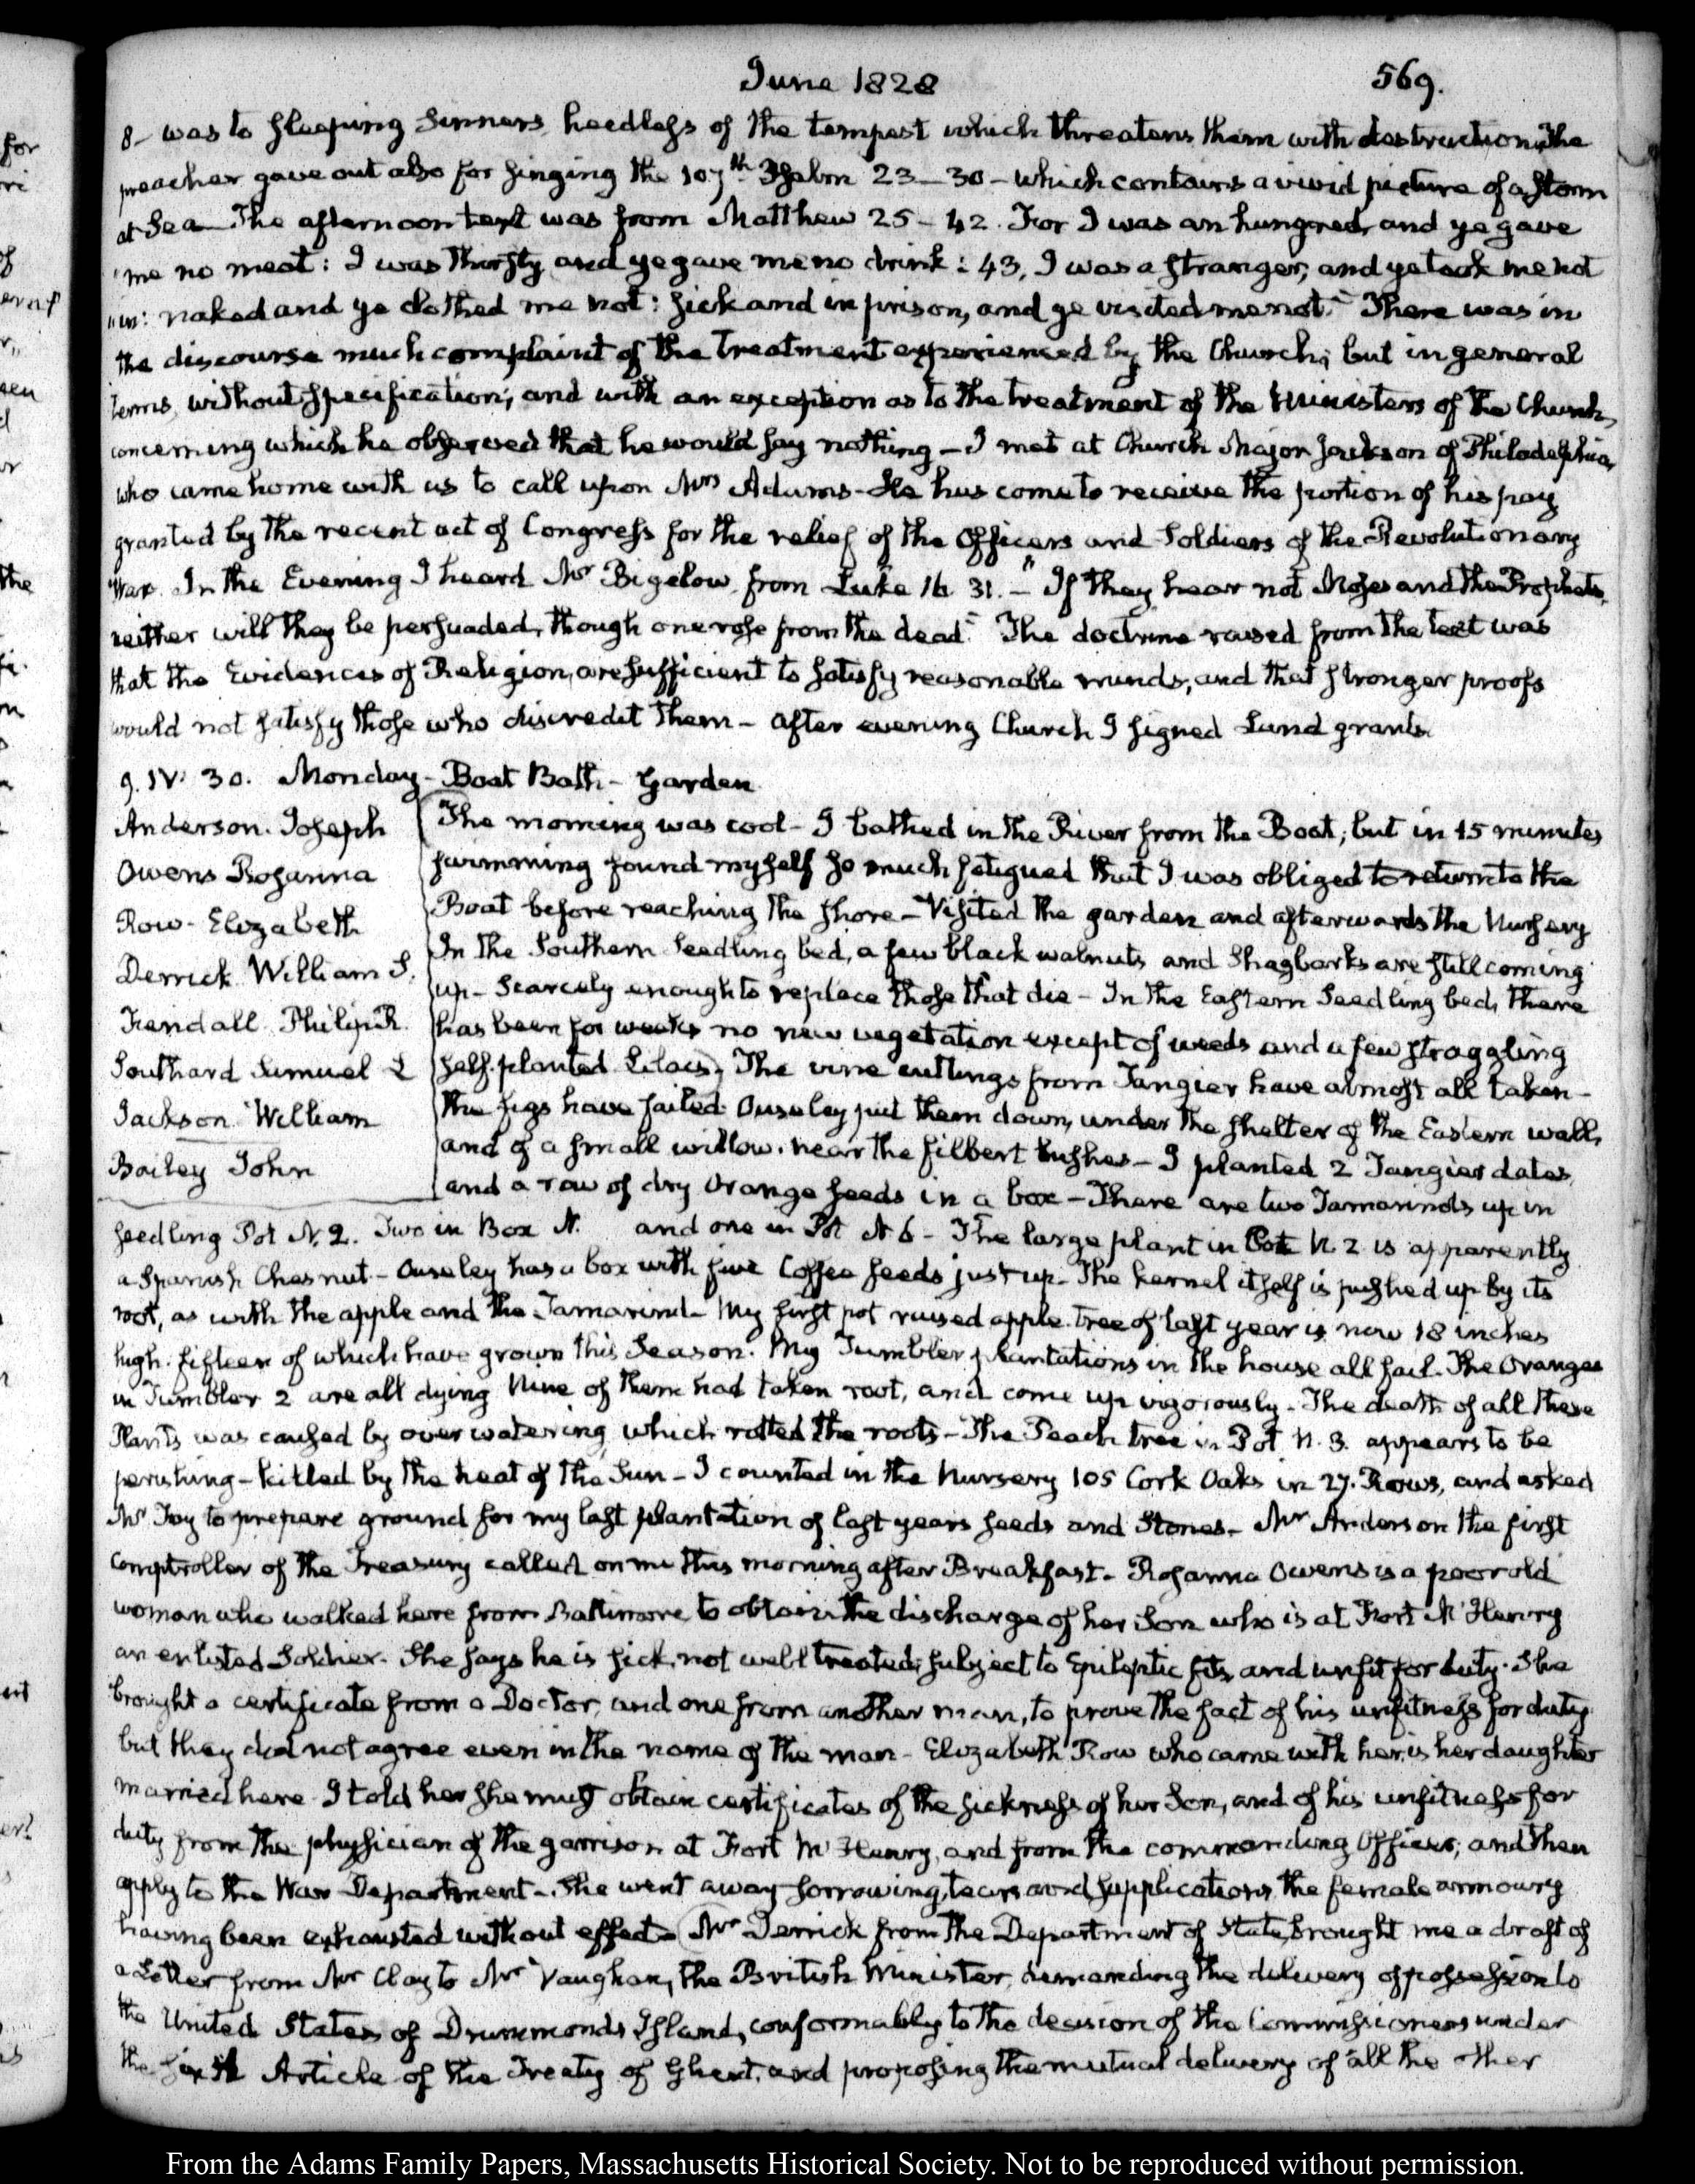 June 1828
569.
8- was to sleeping Sinners, heedless of the tempest which threatens them with destruction. The
preacher gave out also for singing the 107th Psalm 23-30 - which contains a vivid picture of a storm
at Sea - The afternoon text was from Matthew 25-42. For I was an hungred, and ye gave
"me no meat: I was thirsty and ye gave me no drink: 43, I was a stranger, and ye took me not
"in: naked and ye clothed me not: sick and in prison, and ye visited me not." There was in
the discourse much complaint of the treatment experienced by the Church; but in general
terms, without specification; and with an exception as to the treatment of the Ministers of the Church,
concerning which he observed that he would say nothing - I met at Church Major Jackson of Philadelphia,
who came home with us to call upon Mrs Adams - He has come to receive the portion of his pay
granted by the recent act of Congress for the relief of the Officers and Soldiers of the Revolutionary
War. In the Evening I heard Mr Bigelow from Luke 16. 31. - "If they hear not Moses and the Prophets,
neither will they be persuaded, though one rose from the dead." The doctrine raised from the text was
that the Evidences of Religion, are sufficient to satisfy reasonable minds, and that stronger proofs
would not satisfy those who discredit them - after evening Church I signed Land grants.
9. IV. 30. Monday - Boat Bath - Garden
Anderson. Joseph
Owens Rosanna
Row - Elizabeth
Derrick William S.
Fendall Philip R.
Southard Samuel L
Jackson William
Bailey John
The morning was cool - I bathed in the River from the Boat; but in 15 minutes
swimming found myself so much fatigued that I was obliged to return to the
Boat before reaching the shore - Visited the garden and afterwards the Nursery
In the Southern Seedling bed, a few black walnuts and Shagbarks are still coming
up - Scarcely enough to replace those that die - In the Eastern Seedling bed, there
has been for weeks no new vegetation except of weeds and a few straggling
self-planted Lilacs. The vine cuttings from Tangier have almost all taken -
the figs have failed. Ouseley put them down, under the shelter of the Eastern wall,
and of a small willow. near the filbert bushes - I planted 2 Tangier dates,
and a row of dry Orange seeds in a box - There are two Tamarinds up in
seedling Pot N. 2. Two in Box N. and one in Pot N 6 - The large plant in Pot N. 2 is apparently
a Spanish Chesnut - Ouseley has a box with five Coffee seeds just up - The kernel itself is pushed up by its
root, as with the apple and the Tamarind - My first pot raised apple-tree of last year is now 18 inches
high: fifteen of which have grown this Season. My Tumbler plantations in the house all fail. The Oranges
in Tumbler 2 are all dying Nine of them had taken root, and come up vigorously - The death of all these
Plants was caused by over watering which rotted the roots - The Peach tree in Pot N. 3. appears to be
perishing - killed by the heat of the Sun - I counted in the Nursery 105 Cork Oaks in 27. Rows, and asked
Mr Foy to prepare ground for my last plantation of last years seeds and Stones - Mr Anderson the first
Comptroller of the Treasury called on me this morning after Breakfast - Rosanna Owens is a poor old
woman who walked here from Baltimore to obtain the discharge of her Son who is at Fort McHenry
an enlisted Soldier. She says he is sick, not well treated, subject to Epileptic fits, and unfit for duty. She
brought a certificate from a Doctor, and one from another man, to prove the fact of his unfitness for duty
but they did not agree even in the name of the man - Elizabeth Row who came with her, is her daughter
married here - I told her she must obtain certificates of the sickness of her Son, and of his unfitness for
duty from the physician of the garrison at Fort McHenry, and from the commanding Officer; and then
apply to the War Department - She went away sorrowing, tears and supplications, the female armoury
having been exhausted without effect - Mr Derrick from the Department of State, brought me a draft of
a Letter from Mr Clay to Mr Vaughan, the British Minister, demanding the delivery of possession to
the United States of Drummonds Island, conformably to the decision of the Commissioners under
the sixth Article of the Treaty of Ghent, and proposing the mutual delivery of all the other
From the Adams Family Papers, Massachusetts Historical Society. Not to be reproduced without permission.